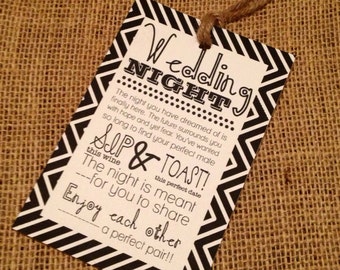 Wedding
NIGHT
The night you have dreamed of is
finally here. The future surrounds you
with hope and yet fear. You've wanted
so long to find your perfect mate
SIP & TOAST!
this wine this perfect date
The night is meant
for you to share
Enjoy each other
a perfect pair!!